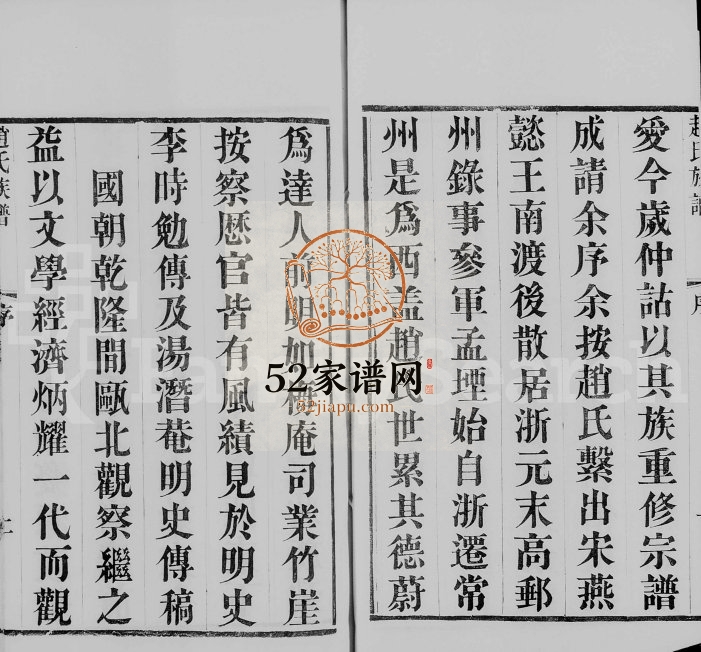 趙氏族譜
序
愛今歲仲詁以其族重修宗譜
成請余序余按趙氏繫出宋燕
懿王南渡後散居浙元末高郵
州錄事參軍孟堙始自浙遷常
州是爲西盖趙氏世累其德蔚
爲達人前明如檢庵司業竹崖
按察歷官皆有風績見於明史
李時勉傳及湯潛菴明史傳稿
國朝乾隆間甌北觀察繼之
益以文學經濟炳耀一代而觀
趙氏族譜
序
52家谱网
52jiapu.com